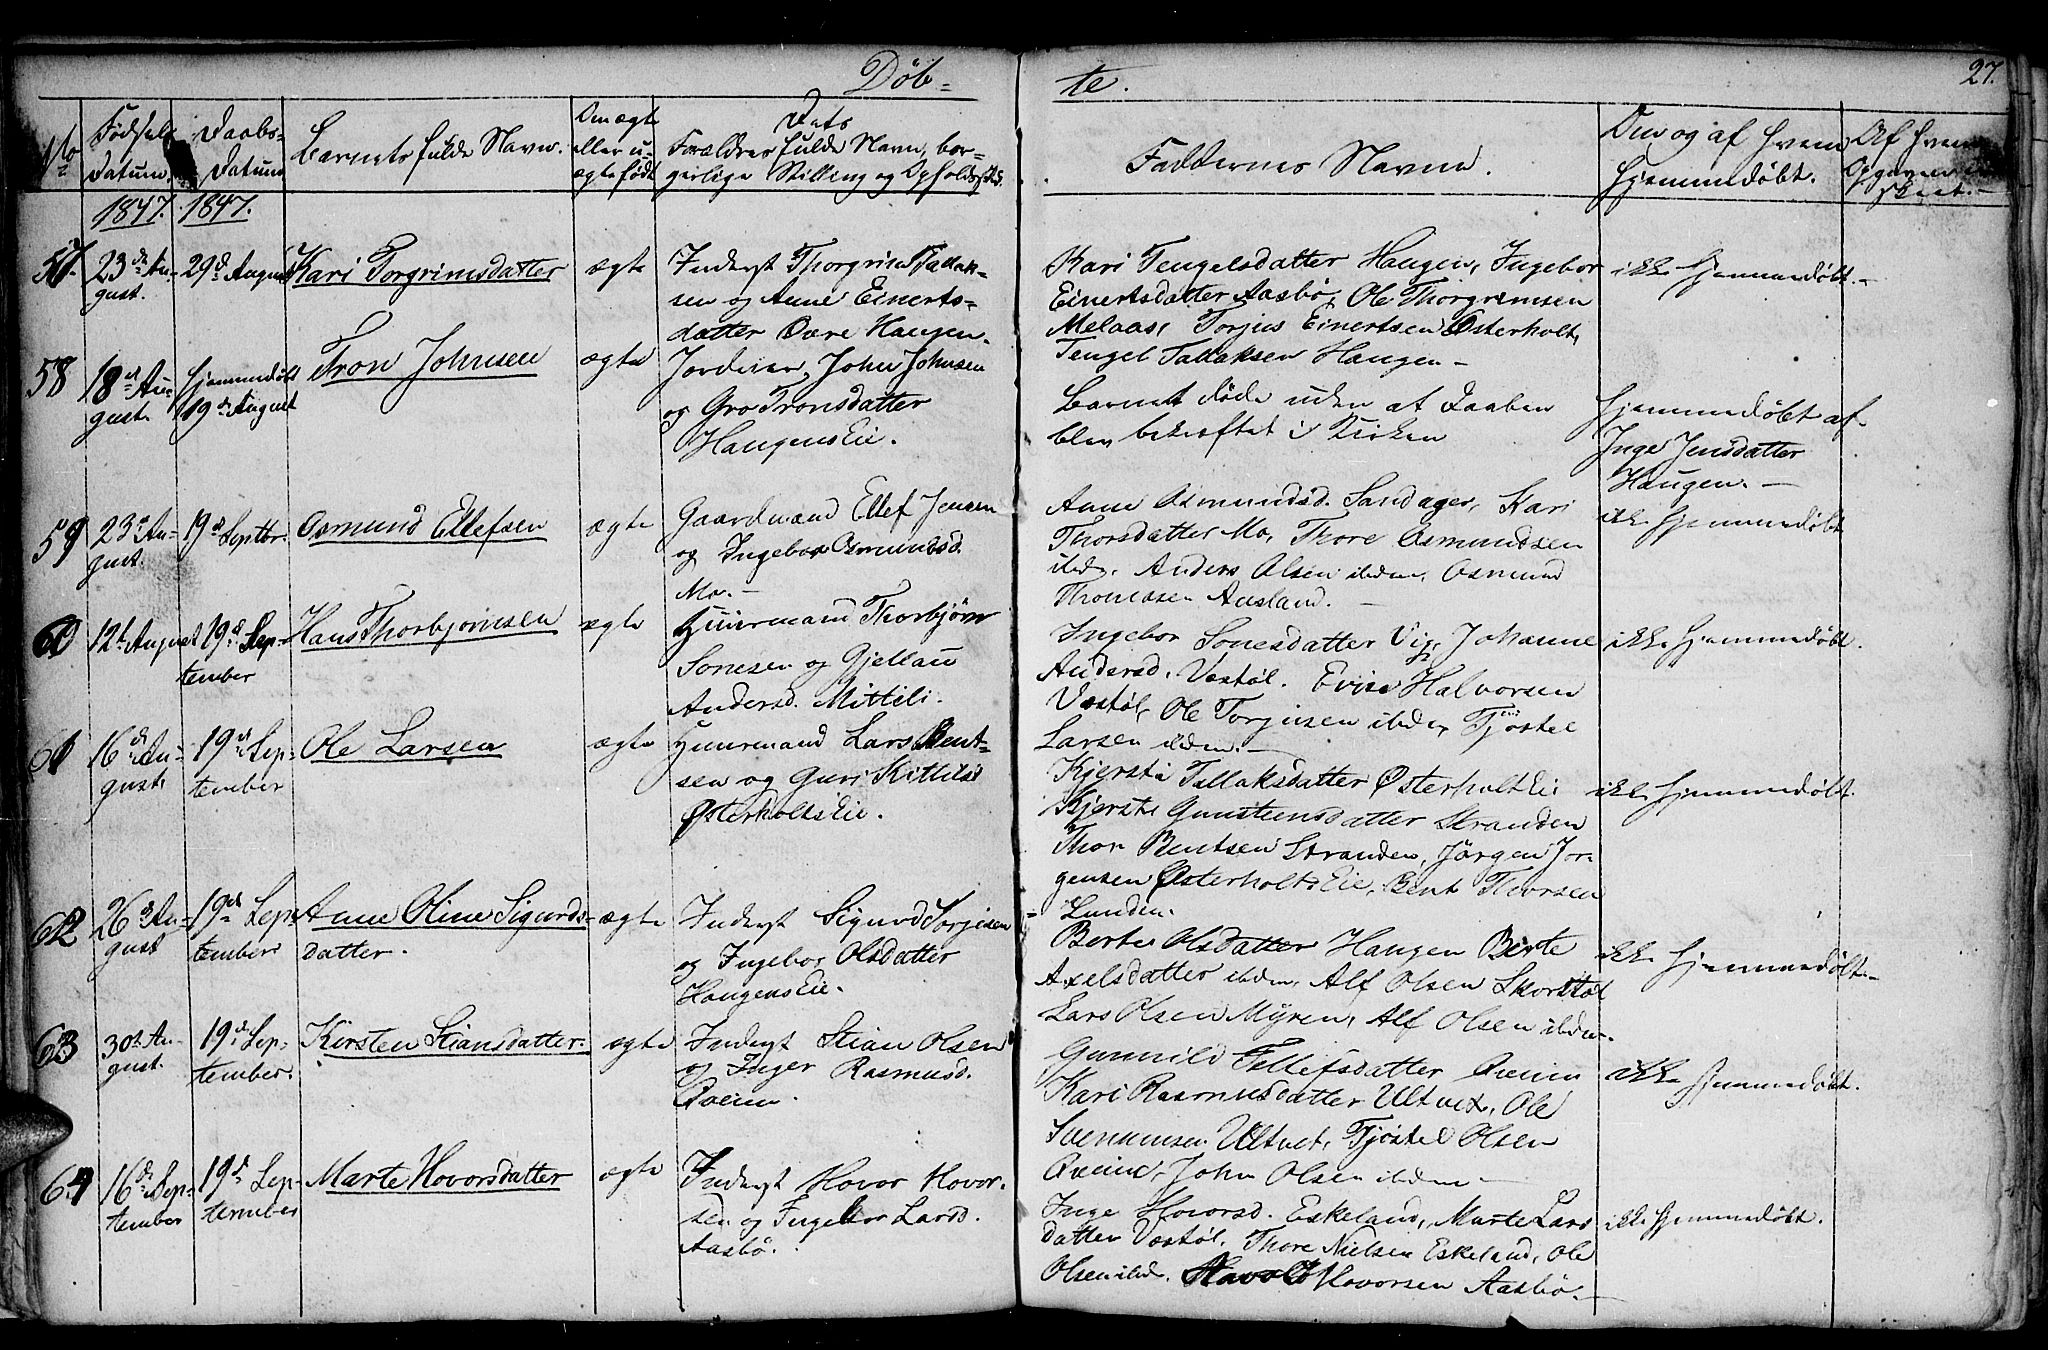 Døb-
te.
27.
No
Fødsels
Datum.
Daabs-
Datum
Barnets fulde Navn.
Om ægte
eller u-
ægte født
Dets
Forældres fulde Navn, bor-
gerlige Stilling og Opholdssted.
Faddernes Navne.
Om og af hvem
hjemmedøbt.
Af hvem
Opgaven
skeet.
1847.
1847.
57.
23de Au-
gust.
29de August
Kari Torgrimsdatter
ægte
Inderst Thorgrim Tallak-
sen og Anne Einerts-
datter Øvre Haugen.
Kari Tengelsdatter Haugen, Ingebor
Einertsdatter Aasbø, Ole Thorgrimsen
Melaas, Torjus Einertsen Østerholt,
Tengel Tallaksen Haugen –
ikke hjemmedøbt. –
58
18de Au-
gust.
hjemmedøbt
19de August
Tron Johnsen
ægte
Jordeier John Johnsen
og Gro Tronsdatter
Haugens Eie.
Barnet døde uden at Daaben
blev bekræftet i Kirken
hjemmedøbt af
Inge Jensdatter
Haugen. –
59
23de Au-
gust.
19de Septbr.
Osmund Ellefsen
ægte
Gaardmand Ellef Jensen
og Ingebor Osmundsd.
Mo. –
Anne Osmundsd. Sandager, Kari
Thorsdatter Mo, Thore Osmundsen
ibdm, Anders Olsen ibdem, Osmund
Thomasen Ausland. –
ikke hjemmedøbt
60
12te August
19de Sep-
tember
Hans Thorbjornsen
ægte
Huusmand Thorbjørn
Sonesen og Gjellau
Andersd. Mittili.
Ingebor Sonesdatter Vig, Johanne
Andersd. Vestøl. Evin Halvorsen
Vestøl, Ole Torjusen ibdem, Tjøstel
Larsen ibdem. –
ikke hjemmedøbt.
61
16de Au-
gust.
19de Sep-
tember
Ole Larsen
ægte
Huusmand Lars Bent-
sen og Guri Kittilsd
Østerholts Eie.
Kjersti Tallaksdatter Østerholt Eie
Kjersti Gunstensdatter Stranden
Thor Bentsen Stranden, Jørgen Jør-
gensen Østerholts Eie, Bent Thorsen
Lunden.
ikke hjemmedøbt.
62
26de Au-
gust
19de Sep-
tember
Anne Oline Sigurds-
datter.
ægte
Inderst Sigurd Torjusen
og Ingebor Olsdatter
Haugens Eie.
Berte Olsdatter Haugen Berte
Axelsdatter ibdem, Alf Olsen Skorstøl
Lars Olsen Myren, Alf Olsen ibdem.
ikke hjemmedøbt. –
63
30te Au-
gust.
19de Sep-
tember.
Kirsten Stiansdatter.
ægte
Inderst Stian Olsen
og Inger Rasmusd.
Qveim.
Gunnild Tellefsdatter Qveim
Kari Rasmusdatter Ultvet, Ole
Svennumsen Ultvet, Tjøstel Olsen
Qveim, John Olsen ibdem –
ikke hjemmedøbt.
64
16de Sep-
tember
19de Sep-
tember
Marte Hovorsdatter
ægte
Inderst Hovor Hovor-
sen og Ingebor Larsd.
Aasbø.
Inge Hovorsd. Eskeland, Marte Lars
datter Vestøl. Thore Nielsen Eskeland, Ole
Olsen ibdm. Harold Hovorsen Aasbø. –
ikke hjemmedøbt.